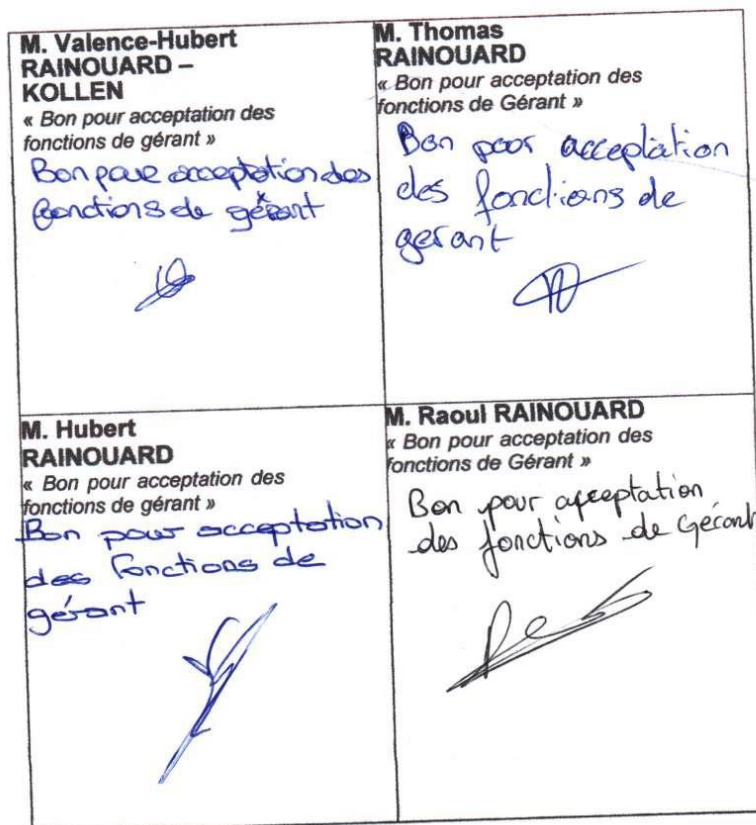 M. Valence-Hubert
RAINOUARD –
KOLLEN
« Bon pour acceptation des
fonctions de gérant »
Bon pour acceptation des
fonctions de gérant
M. Thomas
RAINOUARD
« Bon pour acceptation des
fonctions de Gérant »
Bon pour acceptation
des fonctions de
gerant
M. Hubert
RAINOUARD
« Bon pour acceptation des
fonctions de gérant »
Bon pour acceptation
des fonctions de
gérant
M. Raoul RAINOUARD
« Bon pour acceptation des
fonctions de Gérant »
Bon pour acceptation
des fonctions de Gérant